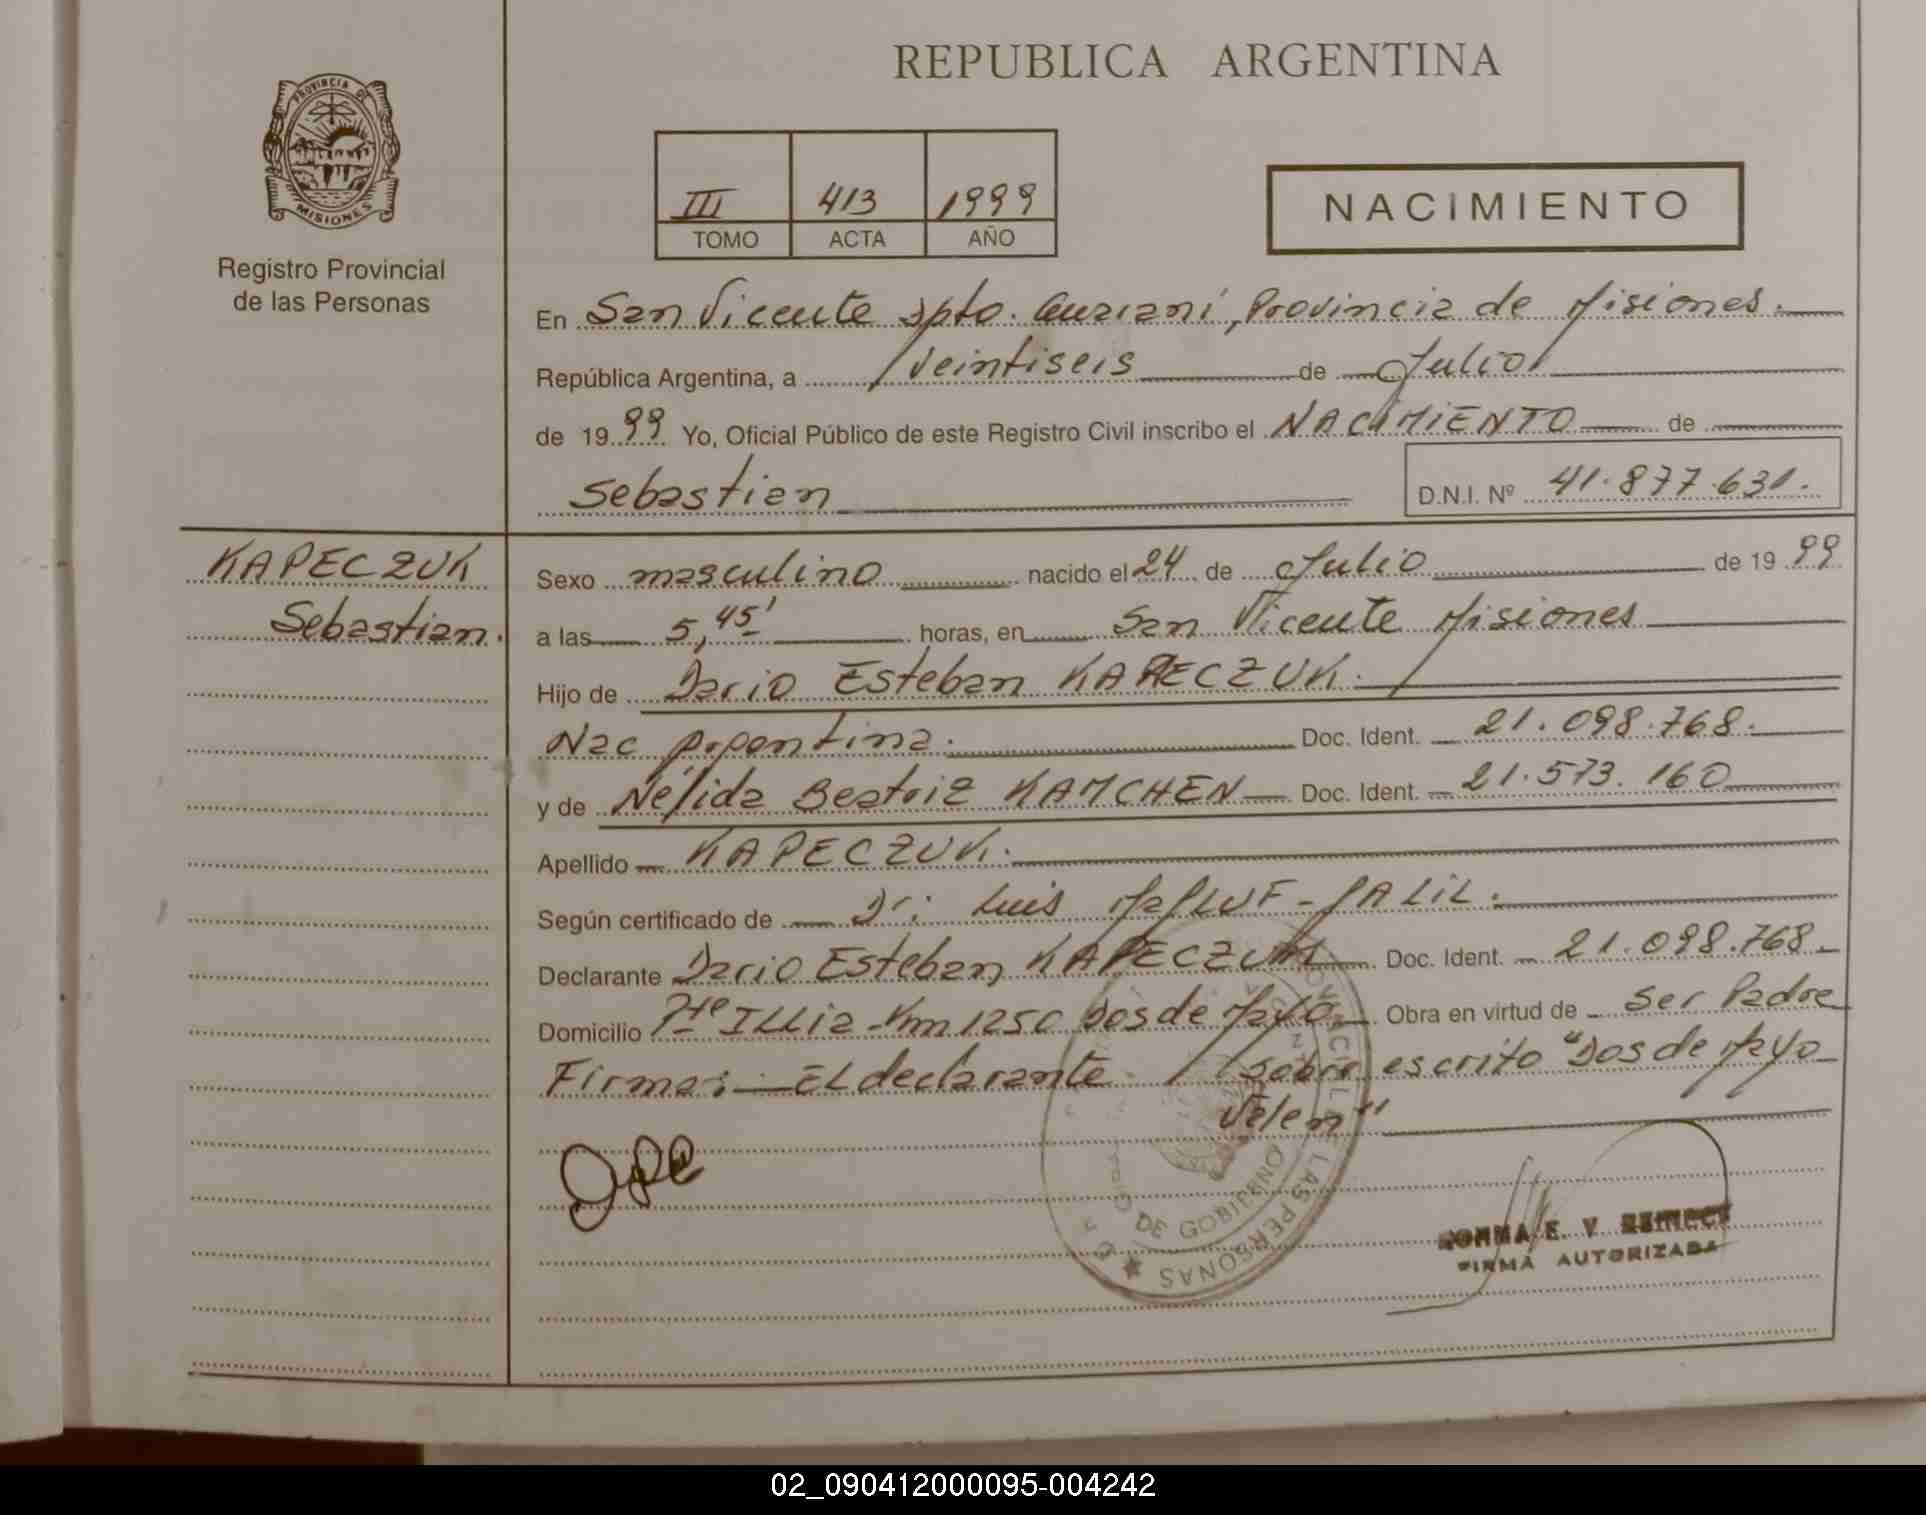 REPUBLICA ARGENTINA
PROVINCIA DE
MISIONES
Registro Provincial
de las Personas
III 413 1999
TOMO ACTA AÑO
NACIMIENTO
En San Vicente Dpto. Guaraní, Provincia de Misiones.
República Argentina, a veintiseis de Julio
de 1999 Yo, Oficial Público de este Registro Civil inscribo el NACIMIENTO de
Sebastian D.N.I. Nº 41.877.631.
KAPECZUK
Sebastian.
Sexo masculino nacido el 24 de Julio de 1999
a las 5,45' horas, en San Vicente Misiones
Hijo de Dario Esteban KAPECZUK.
Nac Argentina. Doc. Ident. 21.098.768.
y de Nélida Beatriz KAMCHEN Doc. Ident. 21.573.160
Apellido KAPECZUK.
Según certificado de Dr: Luis JALIL.
Declarante Dario Esteban KAPECZUK Doc. Ident. 21.098.768
Domicilio Pte ILLia Km 1250 Dos de Mayo Obra en virtud de ser Padre
Firma: El declarante. Sobre escrito "Dos de Mayo
Valen"
DE LAS PERSONAS
DE GOBIERNO
NORMA E. V.
FIRMA AUTORIZADA
02_090412000095-004242